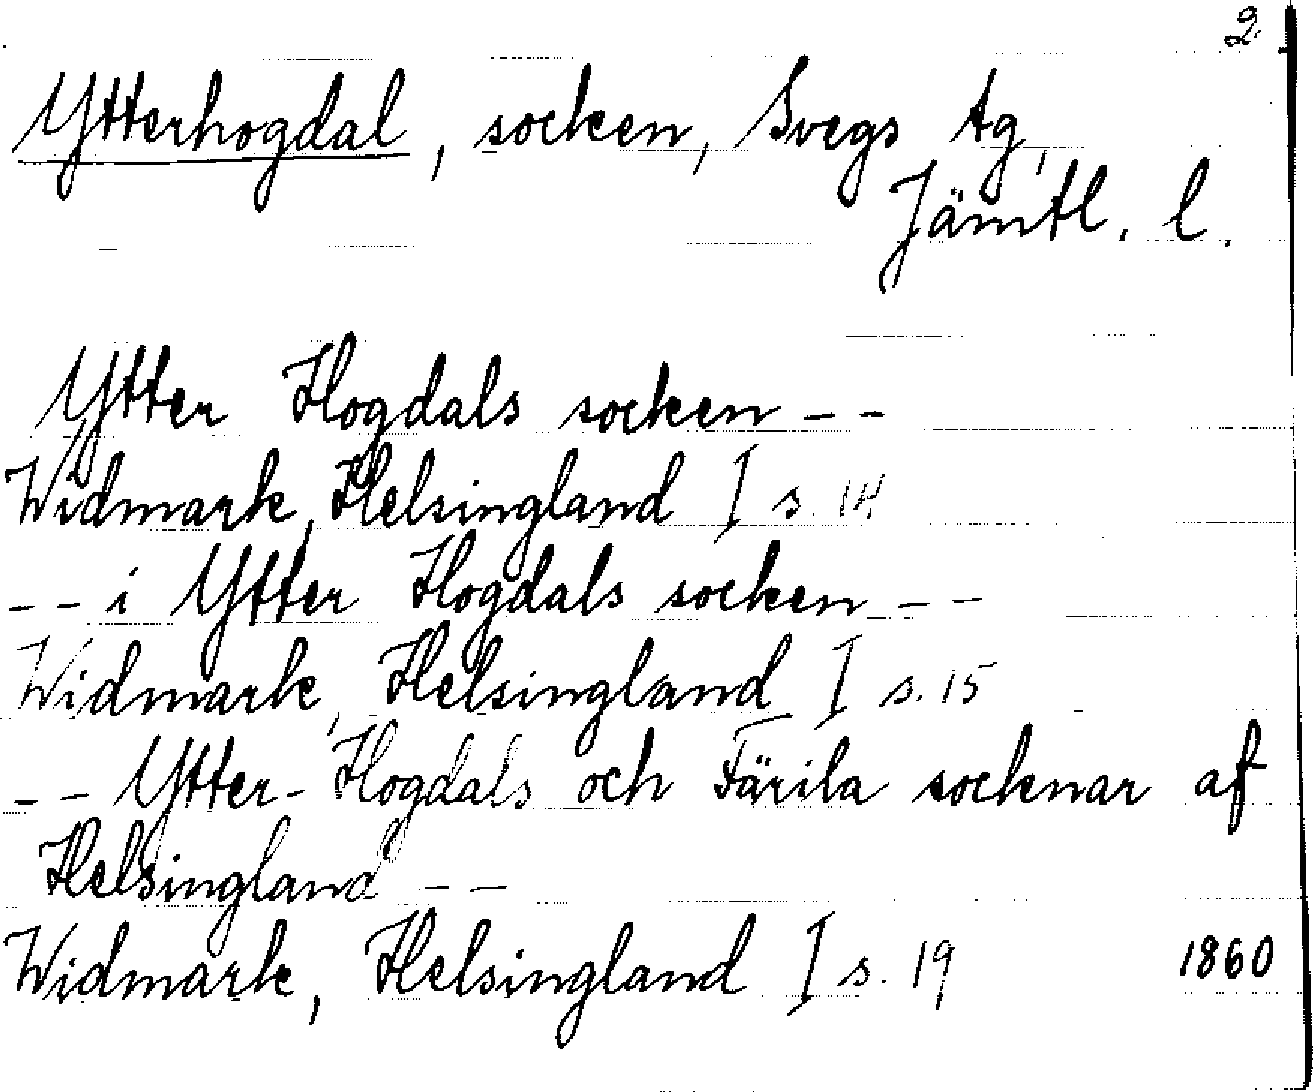 2
Ytterhogdal, socken, Svegs tg,
Jämtl. l.
Ytter Hogdals socken - -
Widmark, Helsingland I s. 14
- - i Ytter Hogdals socken - -
Widmark, Helsingland I s. 15
- - Ytter-Hogdals och Färila socknar af
Helsingland - -
Widmark, Helsingland I s. 19 1860